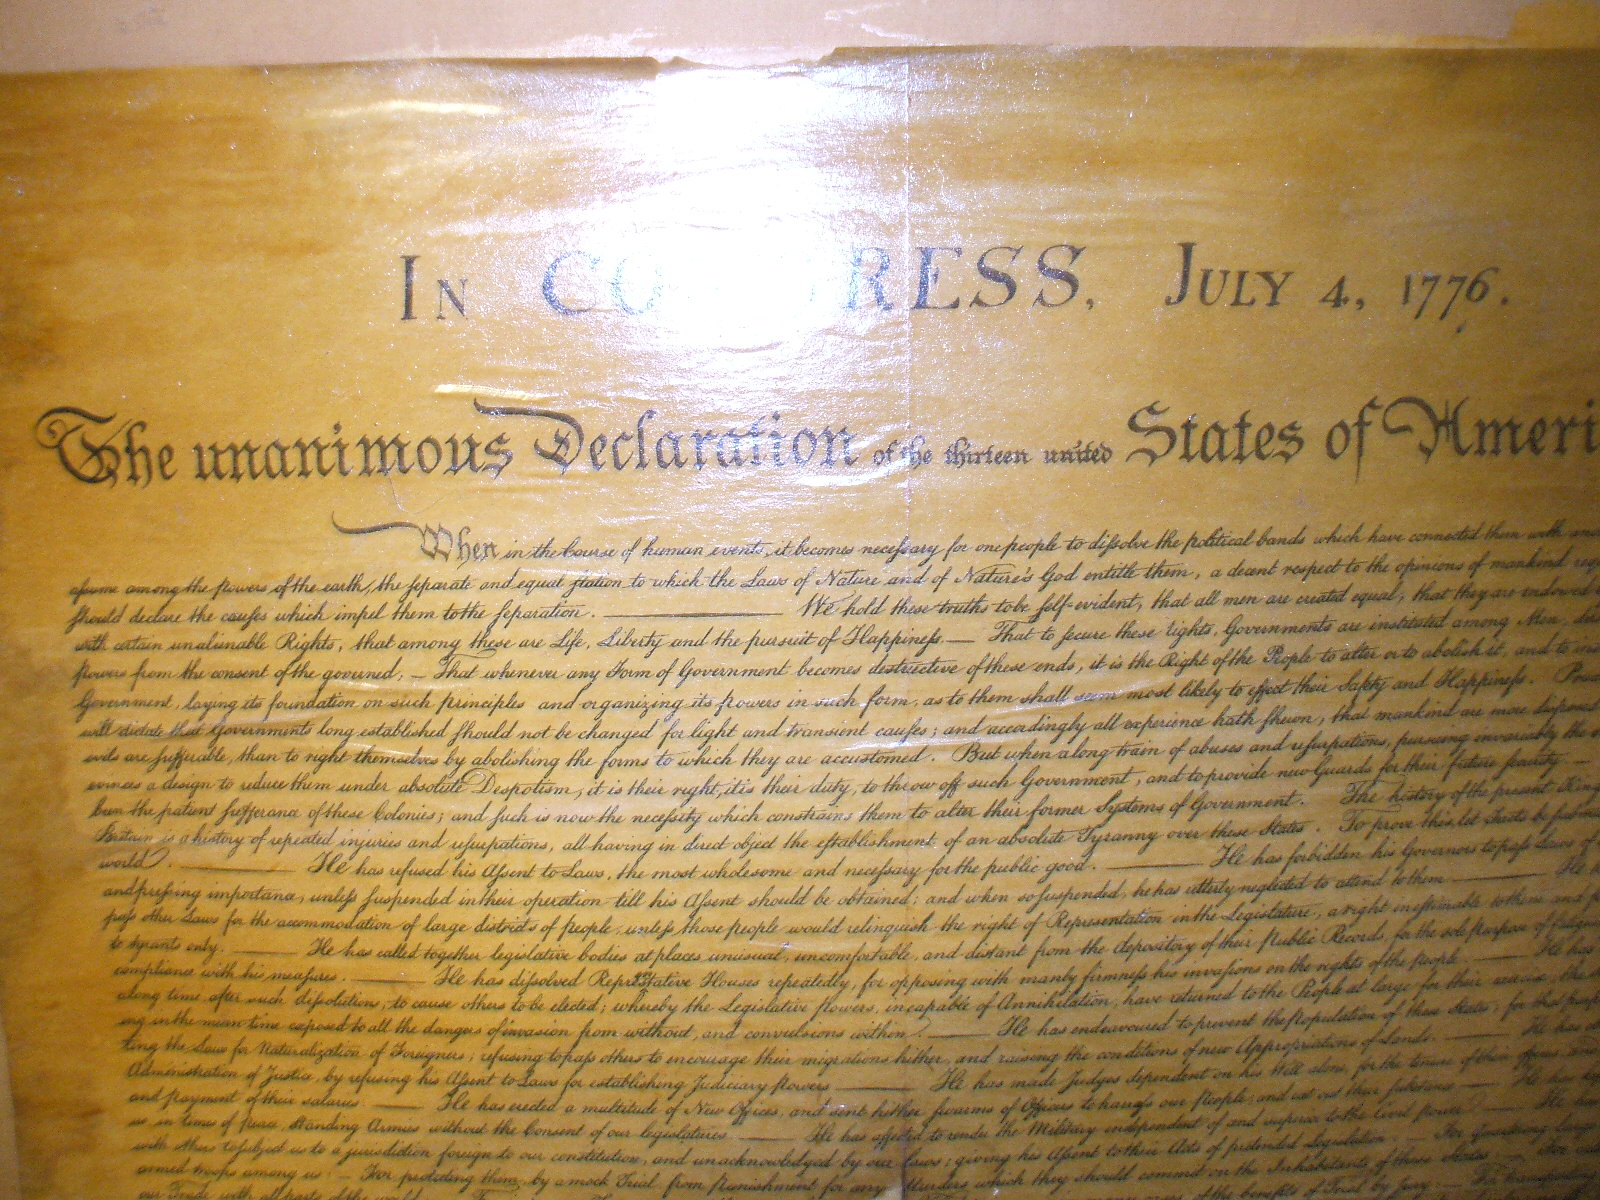 IN CO RESS, JULY 4, 1776.
The unanimous Declaration of the thirteen united States of Ameri
When in the Course of human events, it becomes necessary for one people to dissolve the political bands which have connected them with
assume among the powers of the earth, the separate and equal station to which the Laws of Nature and of Nature's God entitle them, a decent respect to the opinions of mankind
should declare the causes which impel them to the separation. We hold these truths to be self-evident, that all men are created equal, that they are endowed
with certain unalienable Rights, that among these are Life, Liberty and the pursuit of Happiness.— That to secure these rights, Governments are instituted among Men,
powers from the consent of the governed, — That whenever any Form of Government becomes destructive of these ends, it is the Right of the People to alter or to abolish it, and to
Government, laying its foundation on such principles and organizing its powers in such form, as to them shall seem most likely to effect their Safety and Happiness.
will dictate that Governments long established should not be changed for light and transient causes; and accordingly all experience hath shewn, that mankind are more disposed
evils are sufferable, than to right themselves by abolishing the forms to which they are accustomed. But when a long train of abuses and usurpations, pursuing invariably the
evinces a design to reduce them under absolute Despotism, it is their right, it is their duty, to throw off such Government, and to provide new Guards for their future security.—
been the patient sufferance of these Colonies; and such is now the necessity which constrains them to alter their former Systems of Government. The history of the present King
Britain is a history of repeated injuries and usurpations, all having in direct object the establishment of an absolute Tyranny over these States. To prove this, let Facts be
world. He has refused his Assent to Laws, the most wholesome and necessary for the public good. He has forbidden his Governors to pass Laws of
and pressing importance, unless suspended in their operation till his Assent should be obtained; and when so suspended, he has utterly neglected to attend to them. He
pass other Laws for the accommodation of large districts of people, unless those people would relinquish the right of Representation in the Legislature, a right inestimable to them and
to tyrants only. He has called together legislative bodies at places unusual, uncomfortable, and distant from the depository of their Public Records, for the sole purpose of
compliance with his measures. He has dissolved Representative Houses repeatedly, for opposing with manly firmness his invasions on the rights of the people. He has
a long time, after such dissolutions, to cause others to be elected; whereby the Legislative powers, incapable of Annihilation, have returned to the People at large for their exercise; the
ing in the mean time exposed to all the dangers of invasion from without, and convulsions within. He has endeavoured to prevent the population of these States; for that
ting the Laws for Naturalization of Foreigners; refusing to pass others to encourage their migrations hither, and raising the conditions of new Appropriations of Lands. He has
Administration of Justice, by refusing his Assent to Laws for establishing Judiciary powers. He has made Judges dependent on his Will alone, for the tenure of their offices,
and payment of their salaries. He has erected a multitude of New Offices, and sent hither swarms of Officers to harrass our people, and eat out their substance. He has
us, in times of peace, Standing Armies without the Consent of our legislatures. He has affected to render the Military independent of and superior to the Civil power. He
with others to subject us to a jurisdiction foreign to our constitution, and unacknowledged by our laws; giving his Assent to their Acts of pretended Legislation: — For quartering large
armed troops among us: — For protecting them, by a mock Trial, from punishment for any Murders which they should commit on the Inhabitants of these States: — For
our Trade with all parts of the world: of the benefits of Trial by Jury: — For